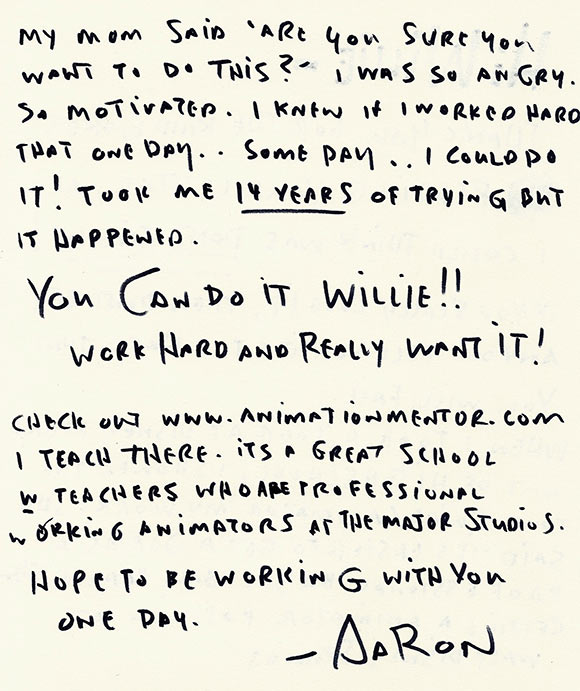 MY MOM SAID 'ARE YOU SURE YOU
WANT TO DO THIS?' I WAS SO ANGRY.
SO MOTIVATED. I KNEW IF I WORKED HARD
THAT ONE DAY.. SOME DAY.. I COULD DO
IT! TOOK ME 14 YEARS OF TRYING BUT
IT HAPPENED.
YOU CAN DO IT WILLIE!!
WORK HARD AND REALLY WANT IT!
CHECK OUT WWW.ANIMATIONMENTOR.COM
I TEACH THERE. ITS A GREAT SCHOOL
W TEACHERS WHO ARE PROFESSIONAL
WORKING ANIMATORS AT THE MAJOR STUDIOS.
HOPE TO BE WORKING WITH YOU
ONE DAY.
- AARON